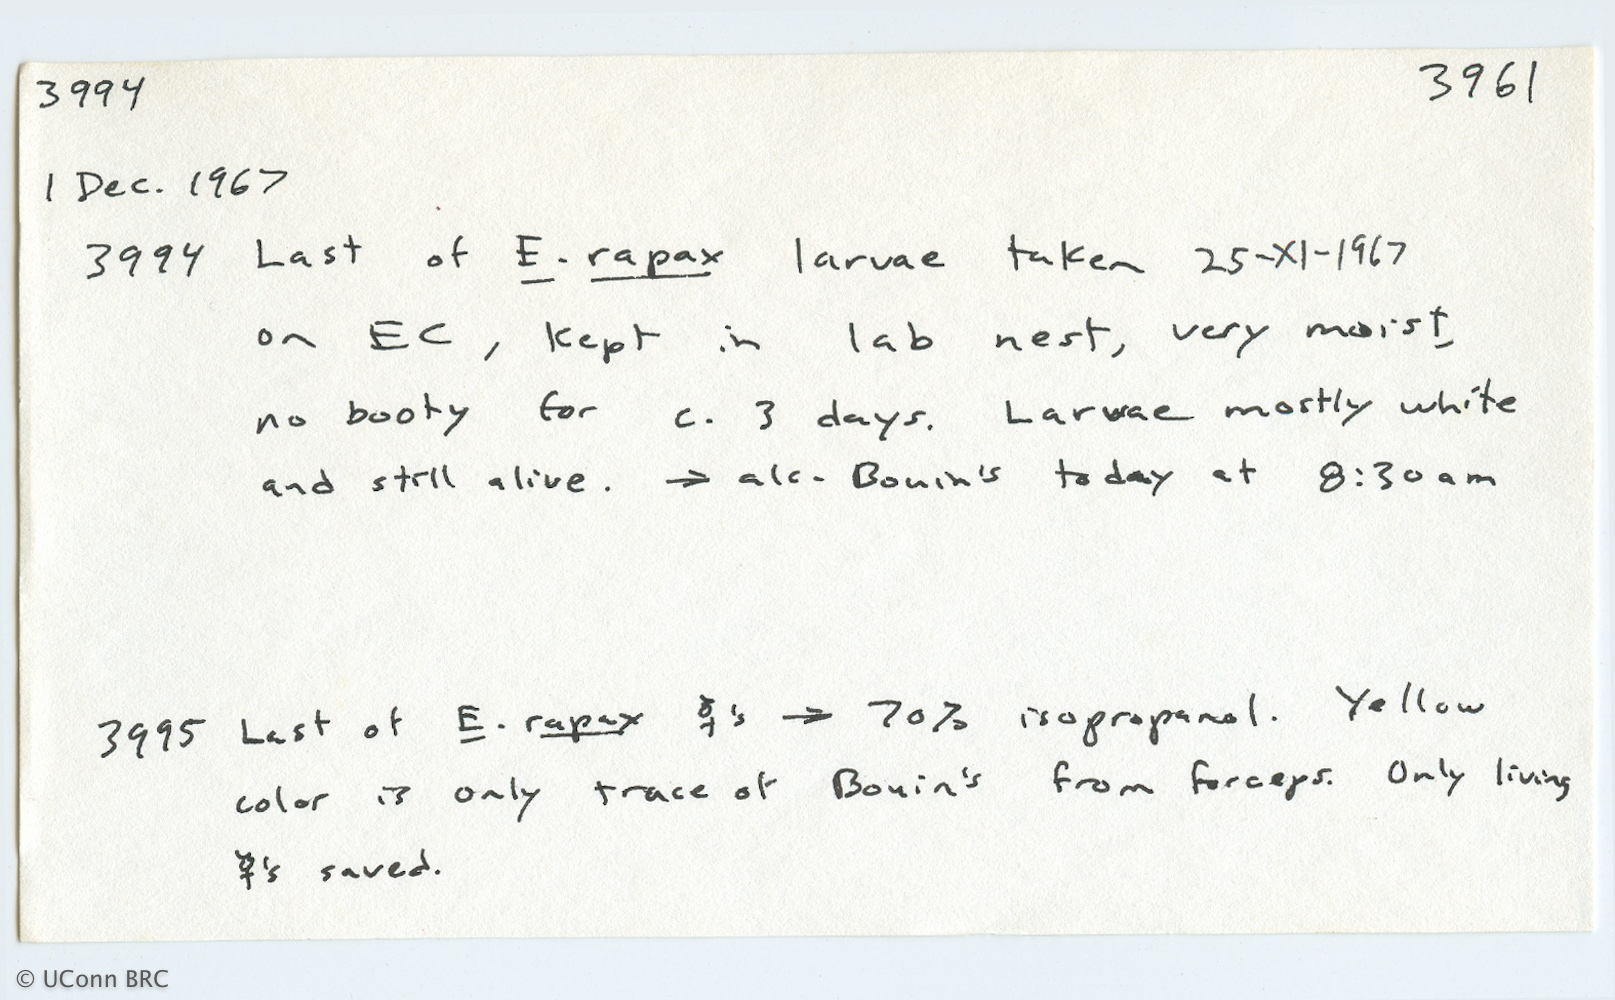 3994 3961
1 Dec. 1967
3994 Last of E. rapax larvae taken 25-XI-1967
on EC, kept in lab nest, very moist,
no booty for c. 3 days. Larvae mostly white
and still alive. → alc. Bouin's today at 8:30 am
3995 Last of E. rapax ☿'s → 70% isopropanol. Yellow
color is only trace of Bouin's from forceps. Only living
☿'s saved.
© UConn BRC